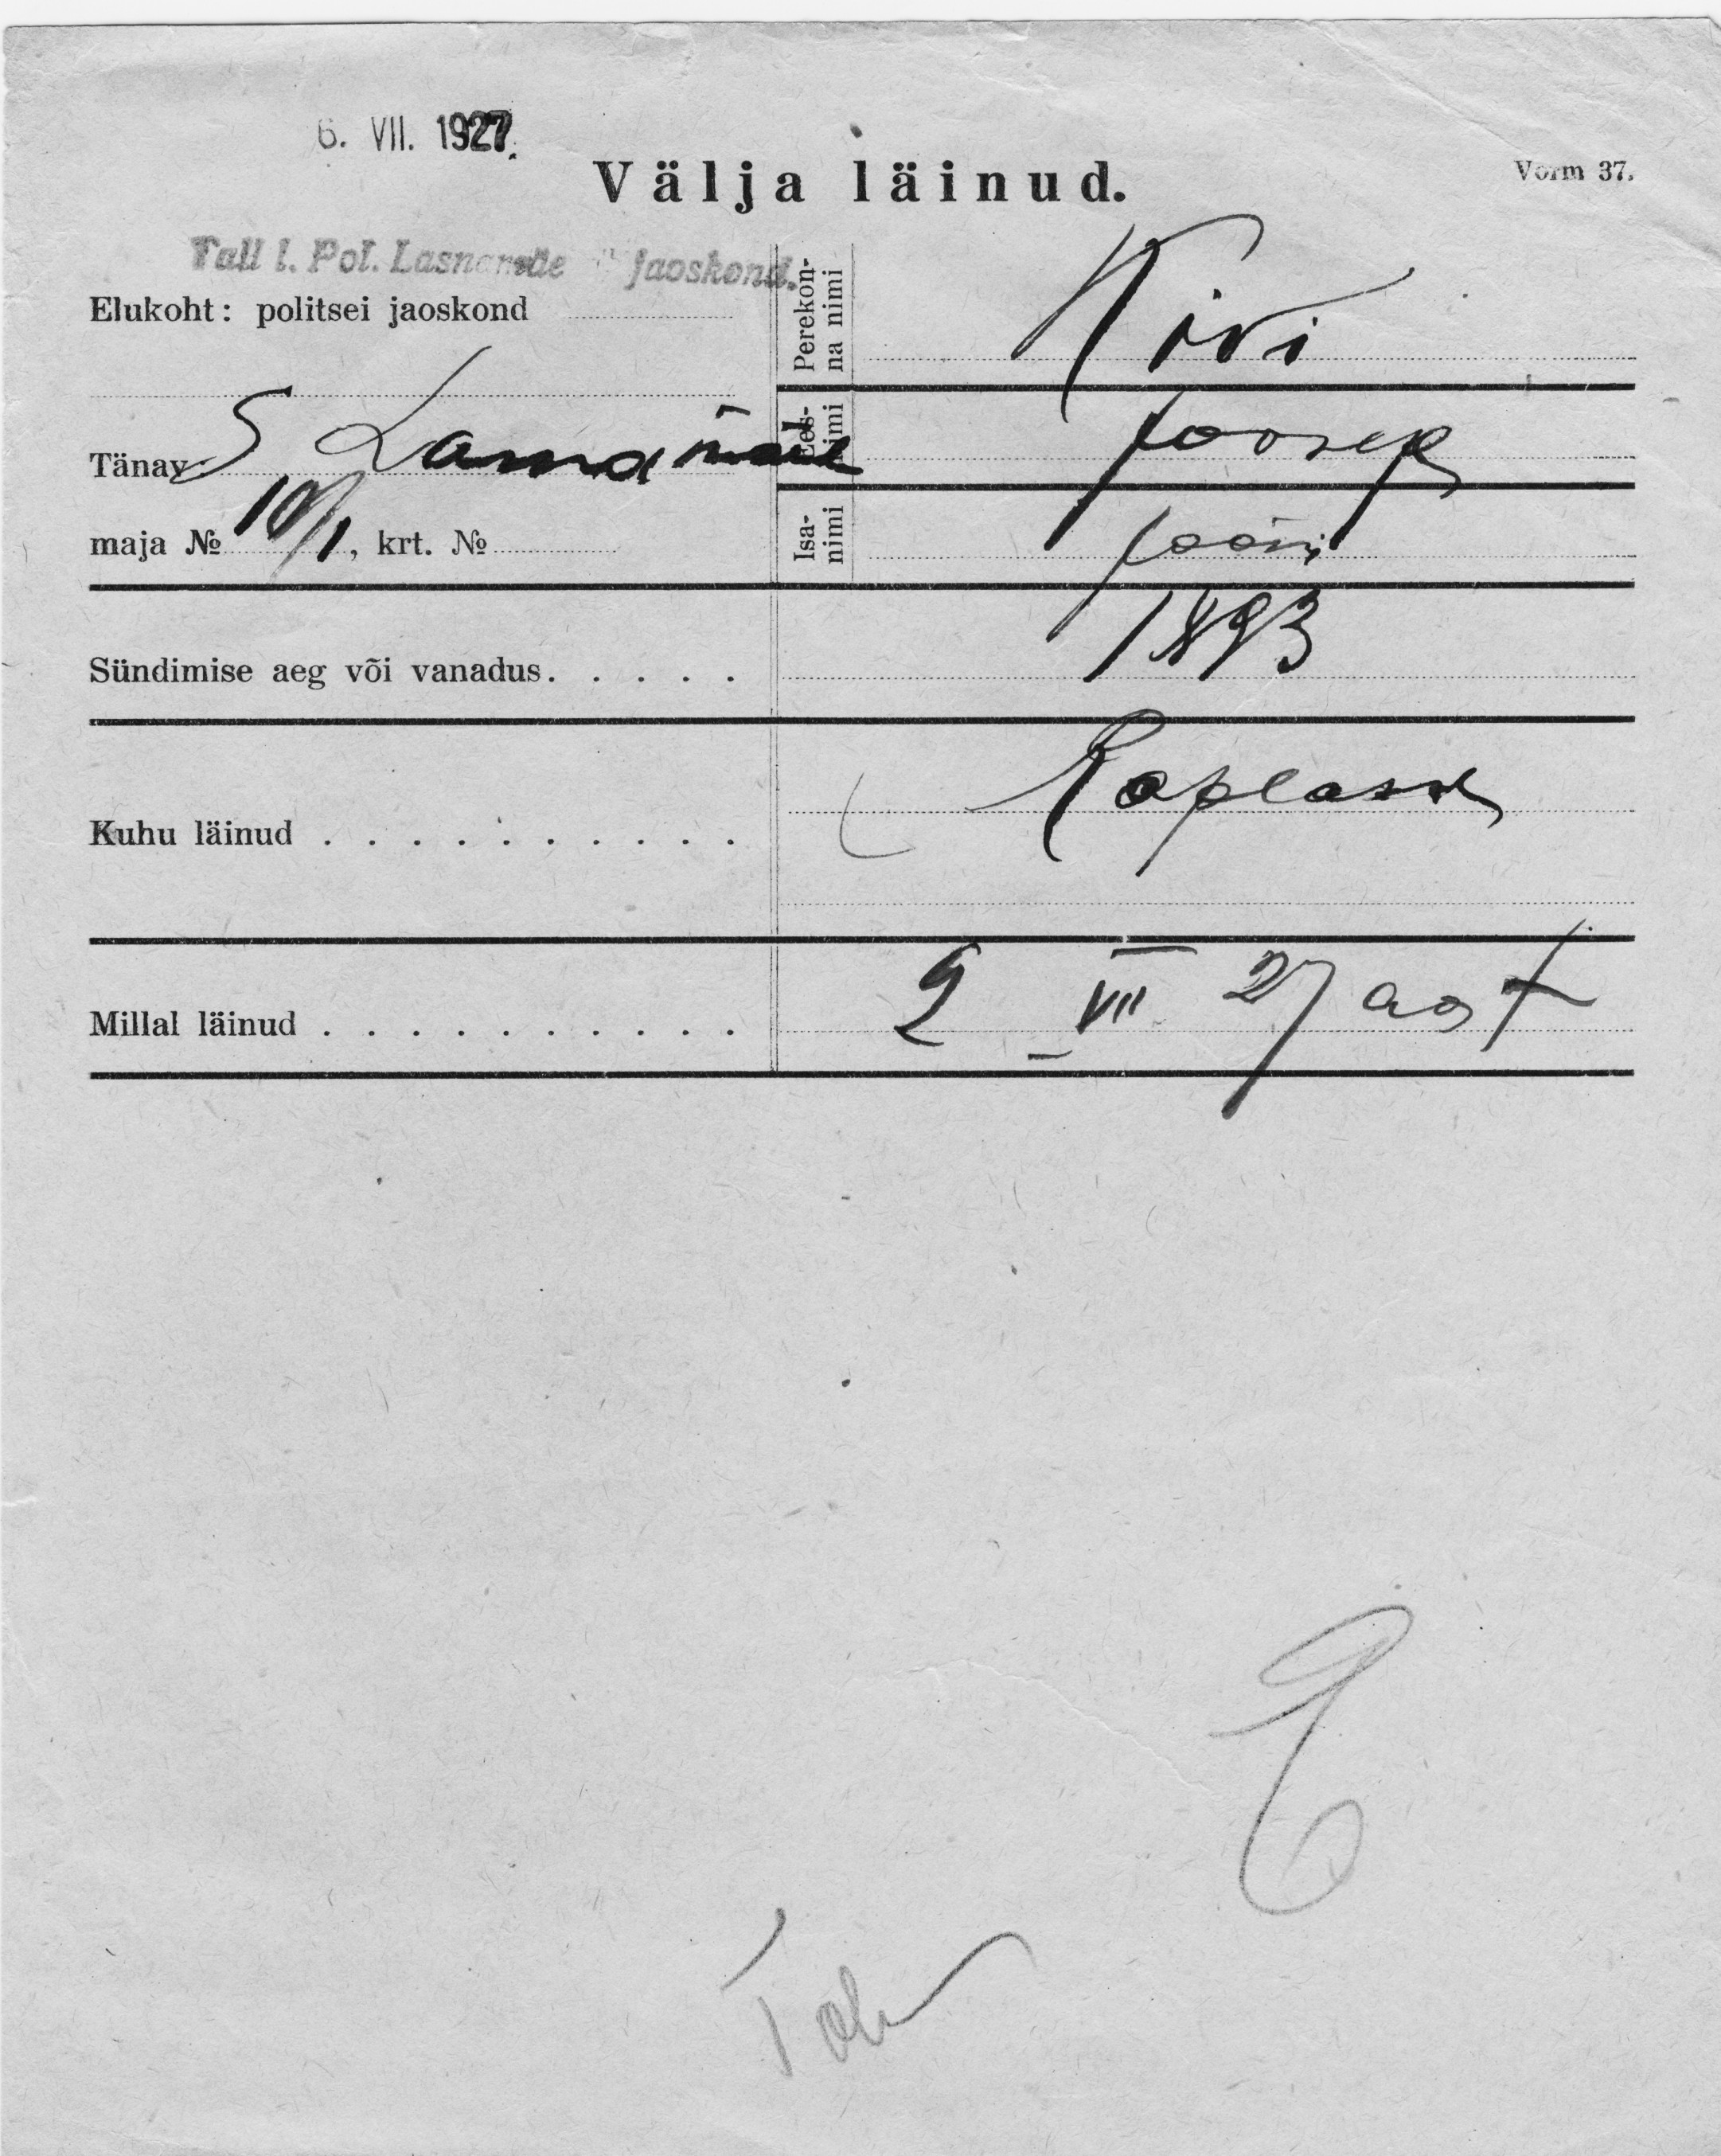 6. VII. 1927.
Välja läinud.
Vorm 37.
Tall l. Pol. Lasnamäe jaoskond.
Elukoht: politsei jaoskond
Perekon-
na nimi
Kivi
Tänav S Lasnamäe
Ees-
nimi
Joosep
maja № 10/1, krt. №
Isa-
nimi
Jaani
Sündimise aeg või vanadus. . . . . .
1893
Kuhu läinud . . . . . . . . . .
Raplasse
Millal läinud . . . . . . . . . .
2 VII 27 aast